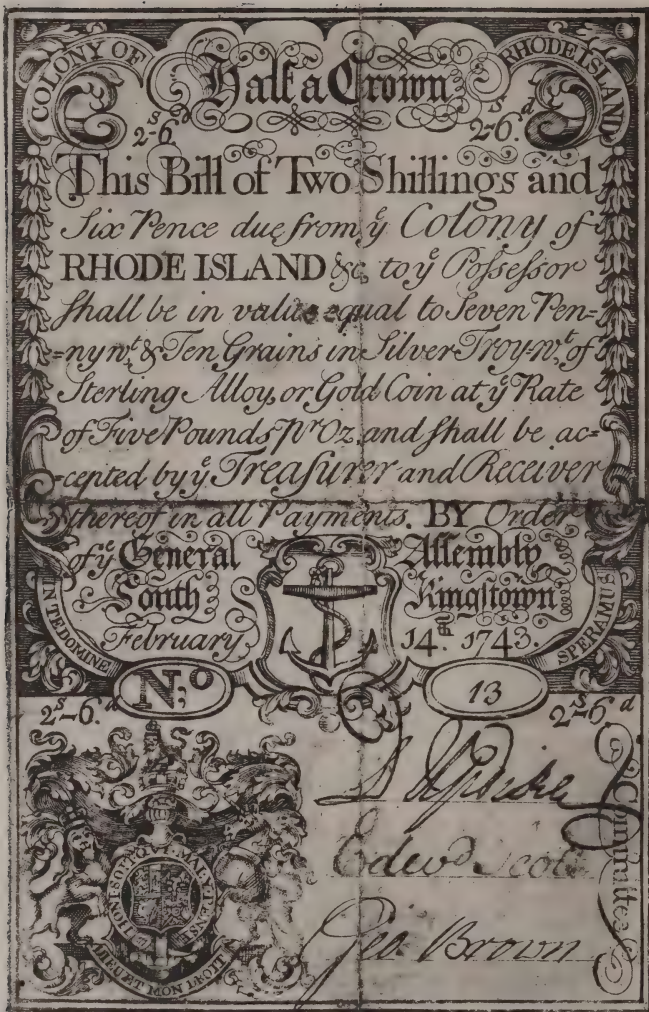 COLONY OF
Half a Crown
RHODE ISLAND
2ˢ-6ᵈ
2ˢ-6.ᵈ
This Bill of Two Shillings and
Six Pence due from yᵉ Colony of
RHODE ISLAND &c. to yᵉ Poſseſsor
ſhall be in value equal to Seven Pen-
=nywᵗ. & Ten Grains in Silver Troy-wᵗ. of
Sterling Alloy, or Gold Coin at yᵉ Rate
of Five Pounds pʳ Oz. and ſhall be ac-
-cepted by yᵉ Treaſurer and Receiver
thereof in all Payments. BY Order
of yᵉ General Aſsembly
South Kingſtown
February 14ᵗʰ. 1743.
IN TE DOMINE
SPERAMUS
N,º 13
2ˢ-6.ᵈ
2ˢ-6.ᵈ
HONI SOIT QUI MAL Y PENSE
DIEU ET MON DROIT
D Updike
Edwᵈ Scott
Geo Brown
Committee